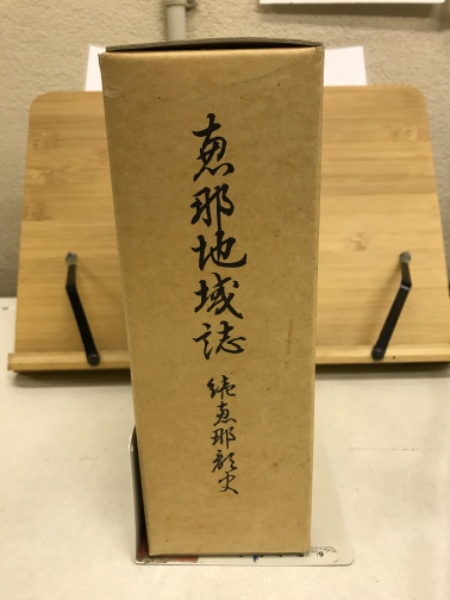 恵那地域誌
続恵那郡史